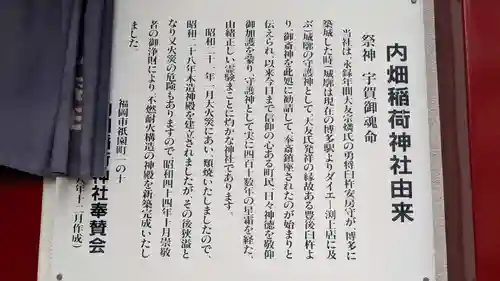 内畑稲荷神社由来
祭神 宇賀御魂命
当社は、永録年間大友宗麟氏の勇将臼杵安房守が、博多に
築城した時(城廓は現在の博多駅よりダイエー渕上店に及
ぶ)城廓の守護神として、大友氏発祥の縁故ある豊後臼杵よ
り、御斎神を此処に勧請して、奉斎鎮座されたのが始まりと
伝えられ、以来今日まで信仰の心ある町民、日々神徳を敬仰
御加護を蒙り、守護神として実に四百十数年の星霜を経た、
由緒正しい霊験まことに灼かな神社であります。
昭和二十二年二月大火災にあい、類焼いたしましたので、
昭和二十八年木造神殿を建立されましたが、その後狭溢と
なり又火災の危険もありますので、昭和四十四年十月崇敬
者の御浄財により、不燃耐火構造の神殿を新築完成いたし
ました。
福岡市祇園町一の十
稲荷神社奉賛会
八年十二月作成)